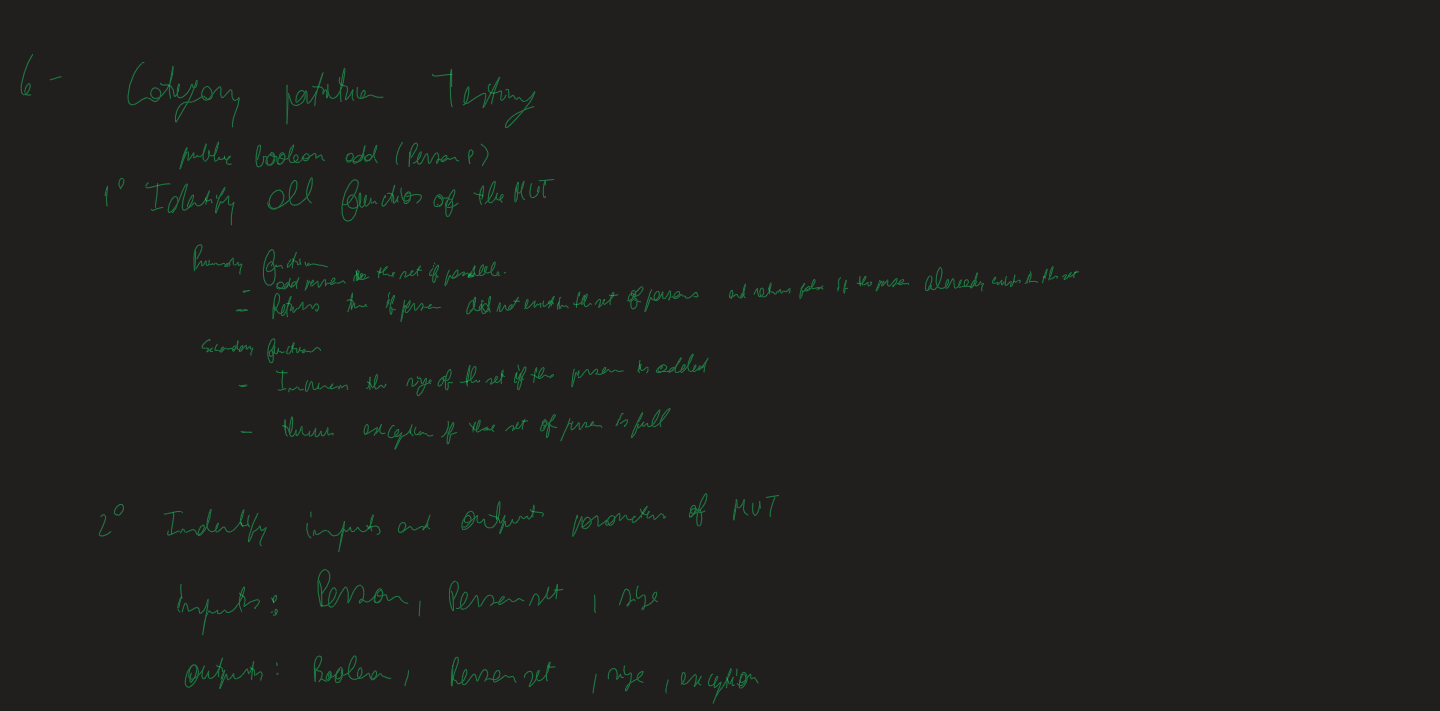 6 - Category partition Testing
public boolean add (Person P)
1º Identify all functios of the MUT
Primary function
- add person to the set if possible.
- Returns true if person did not exist in the set of persons and returns false if the person aleready exists in the set
Secondary functions
- Increases the size of the set if the person is added
- throws exception if the set of person is full
2º Indentify inputs and outputs parameters of MUT
inputs: Person, Person set, size
outputs: Boolean, Person set, size, exception